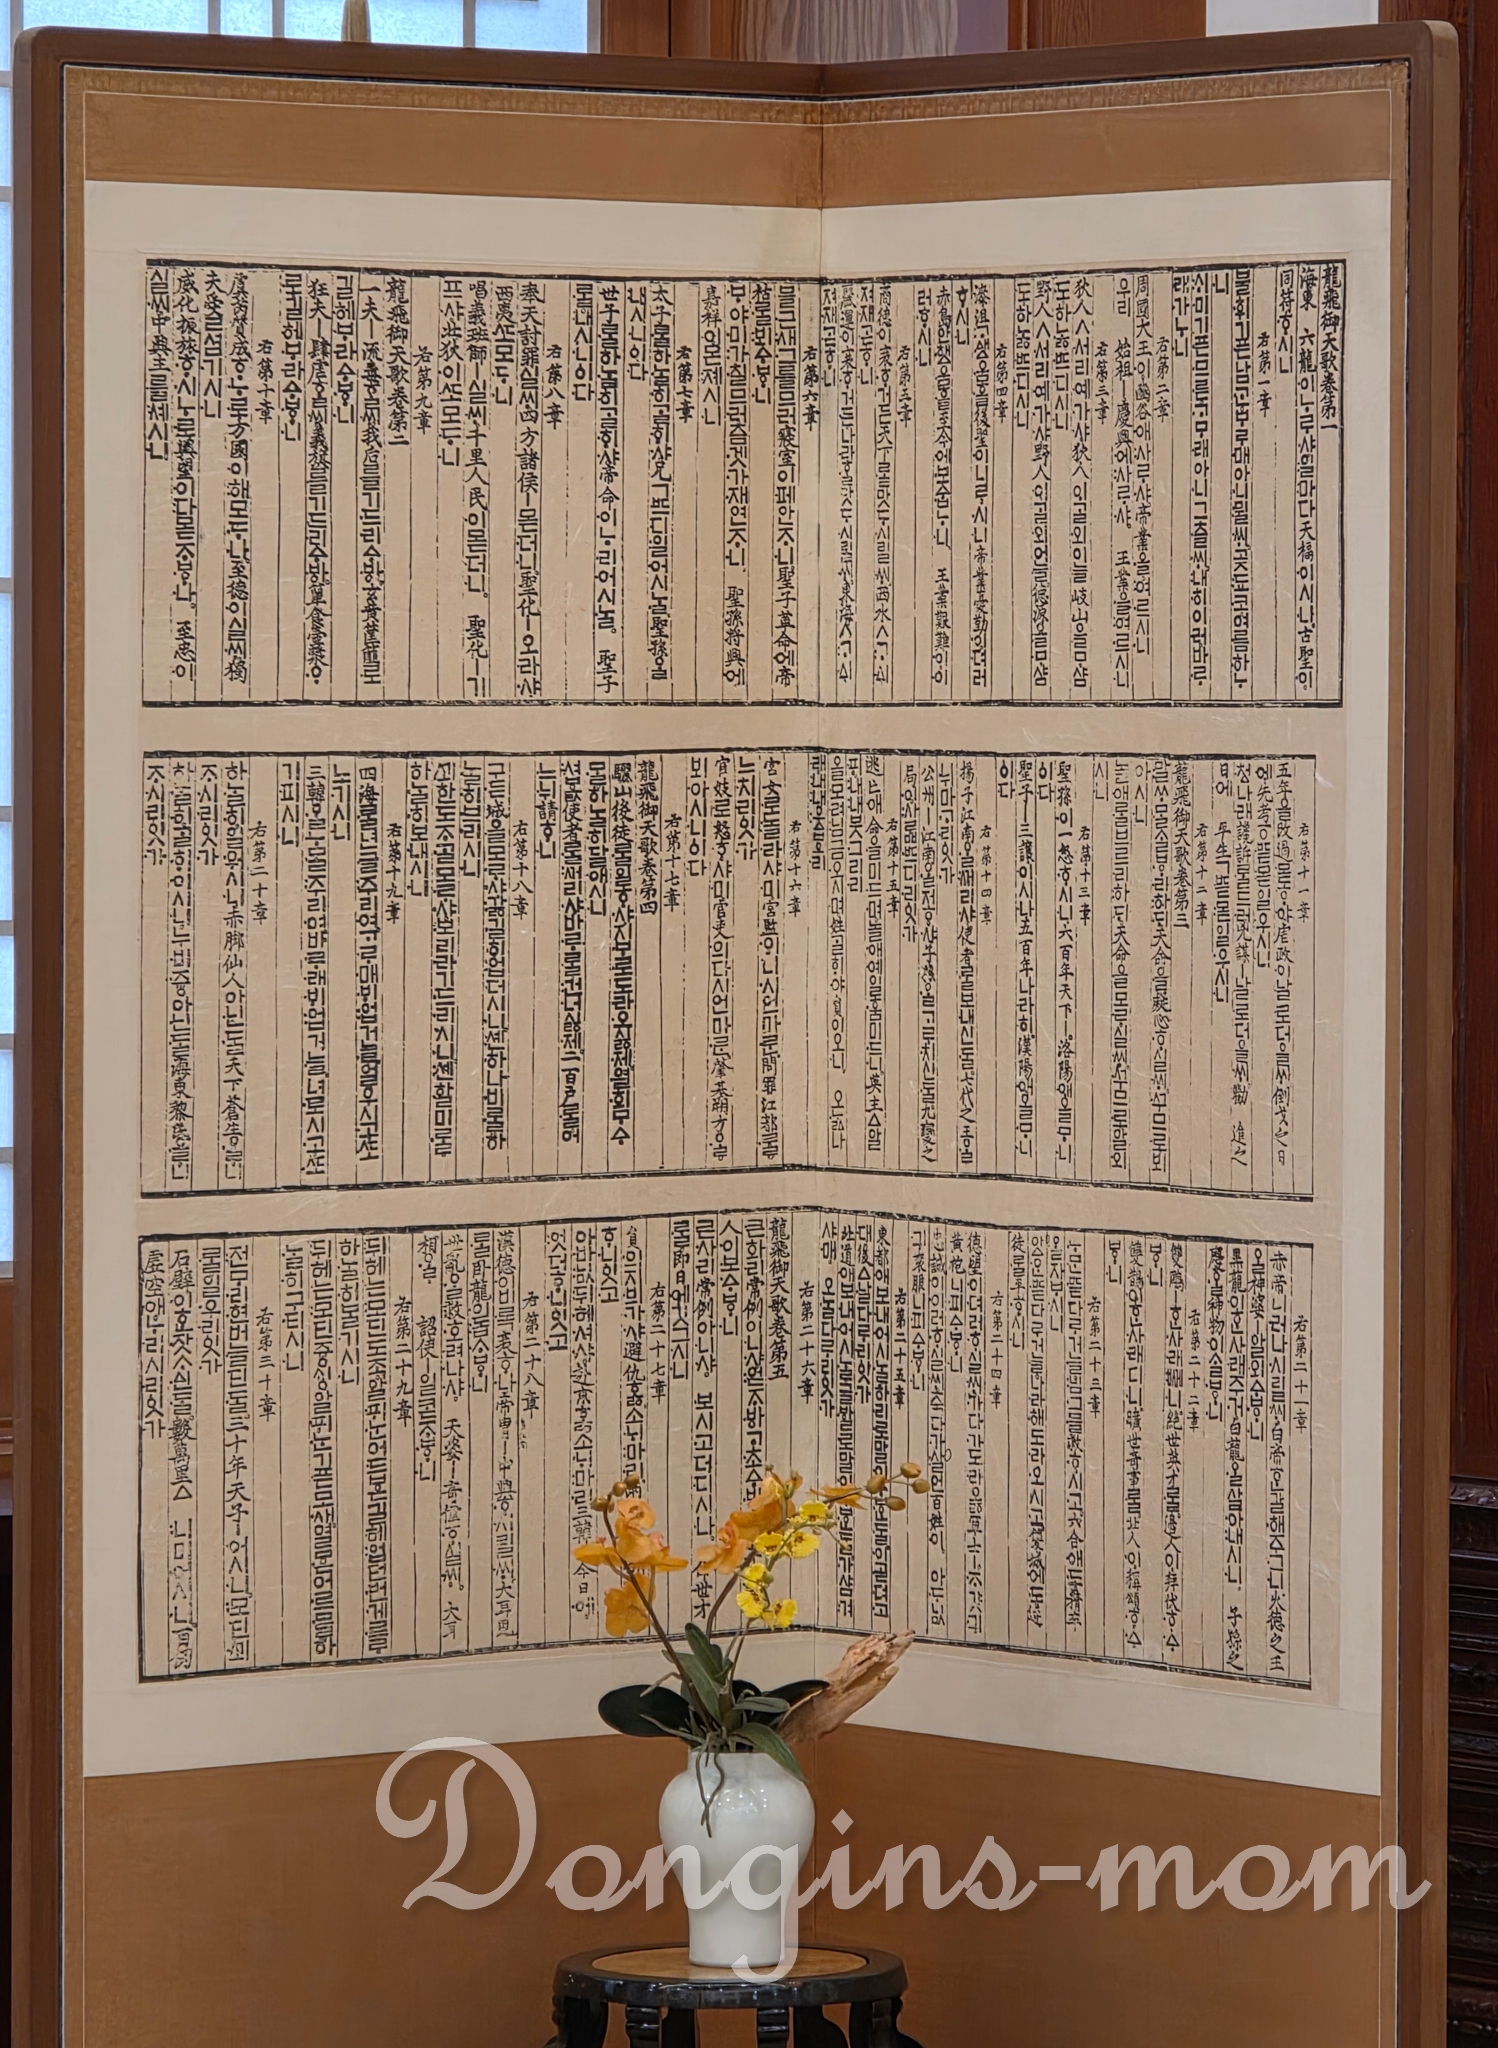 龍飛御天歌卷第一
海東 六龍이ᄂᆞᄅᆞ샤일마다天福이시니古聖이
同符ᄒᆞ시니
右第一章
불휘기픈남ᄀᆞᆫᄇᆞᄅᆞ매아니뮐ᄊᆡ곶됴코여름하ᄂᆞ
니
ᄉᆡ미기픈므른ᄀᆞᄆᆞ래아니그츨ᄊᆡ내히이러바ᄅᆞ
래가ᄂᆞ니
右第二章
周國大王이豳谷애사ᄅᆞ샤帝業을여르시니
우리 始祖ㅣ慶興에사ᄅᆞ샤 王業을여르시니
右第三章
狄人ㅅ서리예가샤狄人이ᄀᆞᆯ외어늘岐山올ᄆᆞ샴
도하ᄂᆞᇙᄠᅳ디시니
野人ㅅ서리예가샤野人이ᄀᆞᆯ외어늘德源올ᄆᆞ샴
도하ᄂᆞᇙᄠᅳ디시니
右第四章
漆沮ᄀᆞᅀᅢ움흘後聖이니ᄅᆞ시니帝業憂勤이뎌러
ᄒᆞ시니
赤島안햇움흘至今에보ᅀᆞᆸᄂᆞ니 王業艱難이이
러ᄒᆞ시니
商德이衰ᄒᆞ거든天下ᄅᆞᆯ맛ᄃᆞ시릴ᄊᆡ西水ㅅᄀᆞᅀᅵ
져재ᄀᆞᆮᄒᆞ니
麗運이衰ᄒᆞ거든나라ᄒᆞᆯ맛ᄃᆞ시릴ᄊᆡ東海ㅅᄀᆞᅀᅵ
져재ᄀᆞᆮᄒᆞ니
右第六章
블근새그를므러寢室이페안ᄌᆞ니聖子革命에帝
祜ᄅᆞᆯ뵈ᅀᆞᄫᆞ니
ᄇᆞ야미가칠므러즘겟가재연ᄌᆞ니 聖孫將興에
嘉祥이몬졔시니
右第七章
太子ᄅᆞᆯ하ᄂᆞᆯ히ᄀᆞᆯᄒᆡ샤兄ㄱᄠᅳ디일어시ᄂᆞᆯ聖孫ᄋᆞᆯ
내시니ᅌᅵ다
世子ᄅᆞᆯ하ᄂᆞᆯ히ᄀᆞᆯᄒᆡ샤帝命이ᄂᆞ리어시ᄂᆞᆯ 聖子
ᄅᆞᆯ내시니ᅌᅵ다
右第八章
奉天討罪실ᄊᆡ四方諸侯ㅣ몯더니聖化ㅣ오라샤
西夷ᄯᅩ모ᄃᆞ니
唱義班師ㅣ실ᄊᆡ千里人民이몯더니 聖化ㅣ기
프샤北狄이ᄯᅩ모ᄃᆞ니
右第九章
龍飛御天歌卷第二
一夫ㅣ流毒ᄒᆞᆯᄊᆡ我后ᄅᆞᆯ기드리ᅀᆞᄫᅡ玄黃筐篚로
길헤ᄇᆞ라ᅀᆞᄫᆞ니
狂夫ㅣ肆虐ᄒᆞᆯᄊᆡ義旗ᄅᆞᆯ기드리ᅀᆞᄫᅡ簞食壺漿ᄋᆞ
로길헤ᄇᆞ라ᅀᆞᄫᆞ니
右第十章
虞芮質成ᄒᆞᄂᆞ로方國이해모ᄃᆞ나至德이실ᄊᆡ獨
夫受ㄹ셤기시니
威化振旅ᄒᆞ시ᄂᆞ로輿望이다몯ᄌᆞᄫᆞ나 至忠이
실ᄊᆡ中興主를셰시니
右第十一章
五年을改過몯ᄒᆞ야虐政이날로더을ᄊᆡ倒戈之日
에先考ᅙᅳᆮ몯일우시니
첫나래讒訴ᄅᆞᆯ드러兇謀ㅣ날로더을ᄊᆡ勸 進之
日에 平生ㄱᄠᅳᆮ몯일우시니
右第十二章
龍飛御天歌卷第三
말ᄊᆞᄆᆞᆯᄉᆞᆯᄫᆞ리하ᄃᆡ天命을疑心ᄒᆞ실ᄊᆡᄭᅮ므로뵈
아시니
놀애ᄅᆞᆯ브르리하ᄃᆡ天命을모ᄅᆞ실ᄊᆡᄭᅮ므로알외
시니
右第十三章
聖孫이一怒ᄒᆞ시니六百年天下ㅣ洛陽애올ᄆᆞ니
ᅌᅵ다
聖子ㅣ三讓이시나五百年나라히漢陽애올ᄆᆞ니
ᅌᅵ다
右第十四章
揚子江南ᄋᆞᆯᄭᅥ리샤使者ᄅᆞᆯ보내신ᄃᆞᆯ七代之王ᄋᆞᆯ
뉘마ᄀᆞ리ᅌᅵᆺ가
公州ㅣ江南ᄋᆞᆯ저ᄒᆞ샤子孫ᄋᆞᆯᄀᆞᄅᆞ치신ᄃᆞᆯ九變之
局이사ᄅᆞᇝᄠᅳ디리ᅌᅵᆺ가
右第十五章
逃亡애命을미드며놀애예일훔미드니英主ㅿ알
ᄑᆡ내내붓그리리
올모려님금오시며姓ᄀᆞᆯᄒᆡ야員이오니 오ᄂᆞᇗ나
래내내웃ᄫᅳ리
右第十六章
宮女로놀라샤미宮監이다시언마ᄅᆞᆫ問罪江都ᄅᆞᆯ
느치리ᅌᅵᆺ가
官妓로怒ᄒᆞ샤미官吏의다시언마ᄅᆞᆫ肇基朔方ᄋᆞᆯ
뵈아시니ᅌᅵ다
右第十七章
龍飛御天歌卷第四
驪山役徒ᄅᆞᆯ일ᄒᆞ샤지ᄇᆞ로도라오ᇙ제열희ᄆᆞᅀᆞ
ᄆᆞᆯ하ᄂᆞᆯ히달애시니
셔ᄫᅳᆳ使者ᄅᆞᆯᄭᅥ리샤바ᄅᆞᄅᆞᆯ건너시ᇙ제二百戶ᄅᆞᆯ어
느뉘請ᄒᆞ니
右第十八章
구든城을모ᄅᆞ샤갏길히입더시니셴하나비ᄅᆞᆯ하
ᄂᆞᆯ히브리시니
ᄭᅬ한도ᄌᆞᄀᆞᆯ모ᄅᆞ샤보리라기드리시니셴할미ᄅᆞᆯ
하ᄂᆞᆯ히보내시니
右第十九章
四海ᄅᆞᆯ년글주리여ᄀᆞᄅᆞ매ᄇᆡ업거늘얼우시고ᄯᅩ
노기시니
三韓ᄋᆞᆯᄂᆞᄆᆞᆯ주리여바ᄅᆞ래ᄇᆡ업거늘녀토시고ᄯᅩ
기피시니
右第二十章
하ᄂᆞᆯ히일워시니赤脚仙人아닌ᄃᆞᆯ天下蒼生ᄋᆞᆯ니
ᄌᆞ시리ᅌᅵᆺ가
하ᄂᆞᆯ히ᄀᆞᆯᄒᆡ이시니누비즁아닌ᄃᆞᆯ海東黎民을니
ᄌᆞ시리ᅌᅵᆺ가
右第二十一章
赤帝니러나시릴ᄊᆡ白帝ᄒᆞᆫ갈해주그니火德之王
ᄋᆞᆯ神婆ㅣ알외ᅀᆞᄫᆞ니
黑龍이ᄒᆞᆫ사래주거白龍ᄋᆞᆯ살아내시니 子孫之
慶ᄋᆞᆯ神物이ᄉᆞᆯᄫᆞ니
右第二十二章
雙鵰ㅣᄒᆞᆫ사래ᄢᅦ니絶世英才ᄅᆞᆯ邊人이拜伏ᄒᆞᅀᆞ
ᄫᆞ니
雙鵲이ᄒᆞᆫ사래디니曠世奇事ᄅᆞᆯ北人이稱頌ᄒᆞᅀᆞ
ᄫᆞ니
右第二十三章
右第二十四章
德望이뎌러ᄒᆞ실ᄊᆡ가다가도라옳軍士ㅣᄌᆞ걋긔
黃袍니피ᅀᆞᄫᆞ니
忠誠이이러ᄒᆞ실ᄊᆡ죽다가살언百姓이 아ᄃᆞᇝ님
긔袞服니피ᅀᆞᄫᆞ니
右第二十五章
東都애보내어시ᄂᆞᆯ하리로말이ᅀᆞᄫᆞᆫᄃᆞᆯ이곧뎌고
대後ㅿ날다ᄅᆞ리ᅌᅵᆺ가
北道애보내어시ᄂᆞᆯ글발로말이ᅀᆞᄫᆞᆫᄃᆞᆯ가샴겨
샤매 오ᄂᆞᆯ다ᄅᆞ리ᅌᅵᆺ가
右第二十六章
龍飛御天歌卷第五
큰화리常例아니샤얻ᄌᆞᄫᅡᄀᆞ초ᅀᆞᄫᅡ
큰사리常例아니샤 보시고더디시나 世才
ᄅᆞᆯ卽日에깃그시니
右第二十七章
右第二十八章
漢德이비록衰ᄒᆞ나帝冑ㅣ中興ᄒᆞ시릴ᄊᆡ大耳兒
ᄅᆞᆯ臥龍이돕ᄉᆞᄫᆞ니
世亂ᄋᆞᆯ救호려나샤 天姿ㅣ奇偉ᄒᆞ실ᄊᆡ 大耳
相ᄋᆞᆯ 詔使ㅣ일ᄏᆞᆮᄌᆞᄫᆞ니
右第二十九章
뒤헤는모딘도ᄌᆞᆨ알ᄑᆡᄂᆞᆫ어드ᄫᅳᆫ길헤업던번게를
하ᄂᆞᆯ히ᄇᆞᆯ기시니
뒤헤는모딘즁ᄉᆡᆼ알ᄑᆡᄂᆞᆫ기픈모새열ᄫᅳᆫ어르믈하
ᄂᆞᆯ히구티시니
右第三十章
전ᄆᆞ리현버늘딘ᄃᆞᆯ三十年天子ㅣ어시니모딘ᄭᅬ
ᄅᆞᆯ일우리ᅌᅵᆺ가
石壁이ᄒᆞᆫ잣ᄉᆞᅀᅵᆫᄃᆞᆯ數萬里ㅿ 니미어시니百仞
虛空애ᄂᆞ리시리ᅌᅵᆺ가
Dongins-mom